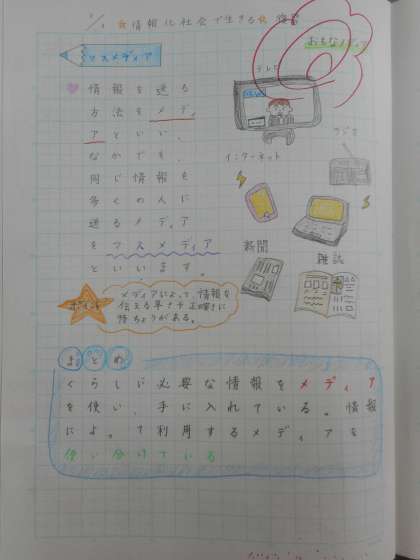 ☆情報化社会で生きる☆ 復習
マスメディア
おもなメディア
情報を送る
方法をメディ
アといい、
なかでも、
同じ情報を
多くの人に
送るメディア
をマスメディア
といいます。
テレビ
NEWS
ラジオ
インターネット
新聞
雑誌
ポイント
メディアによって、情報を
伝える早さや正確さに
特ちょうがある。
まとめ
くらしに必要な情報をメディア
を使い、手に入れている。情報
によって利用するメディアを
使い分けている